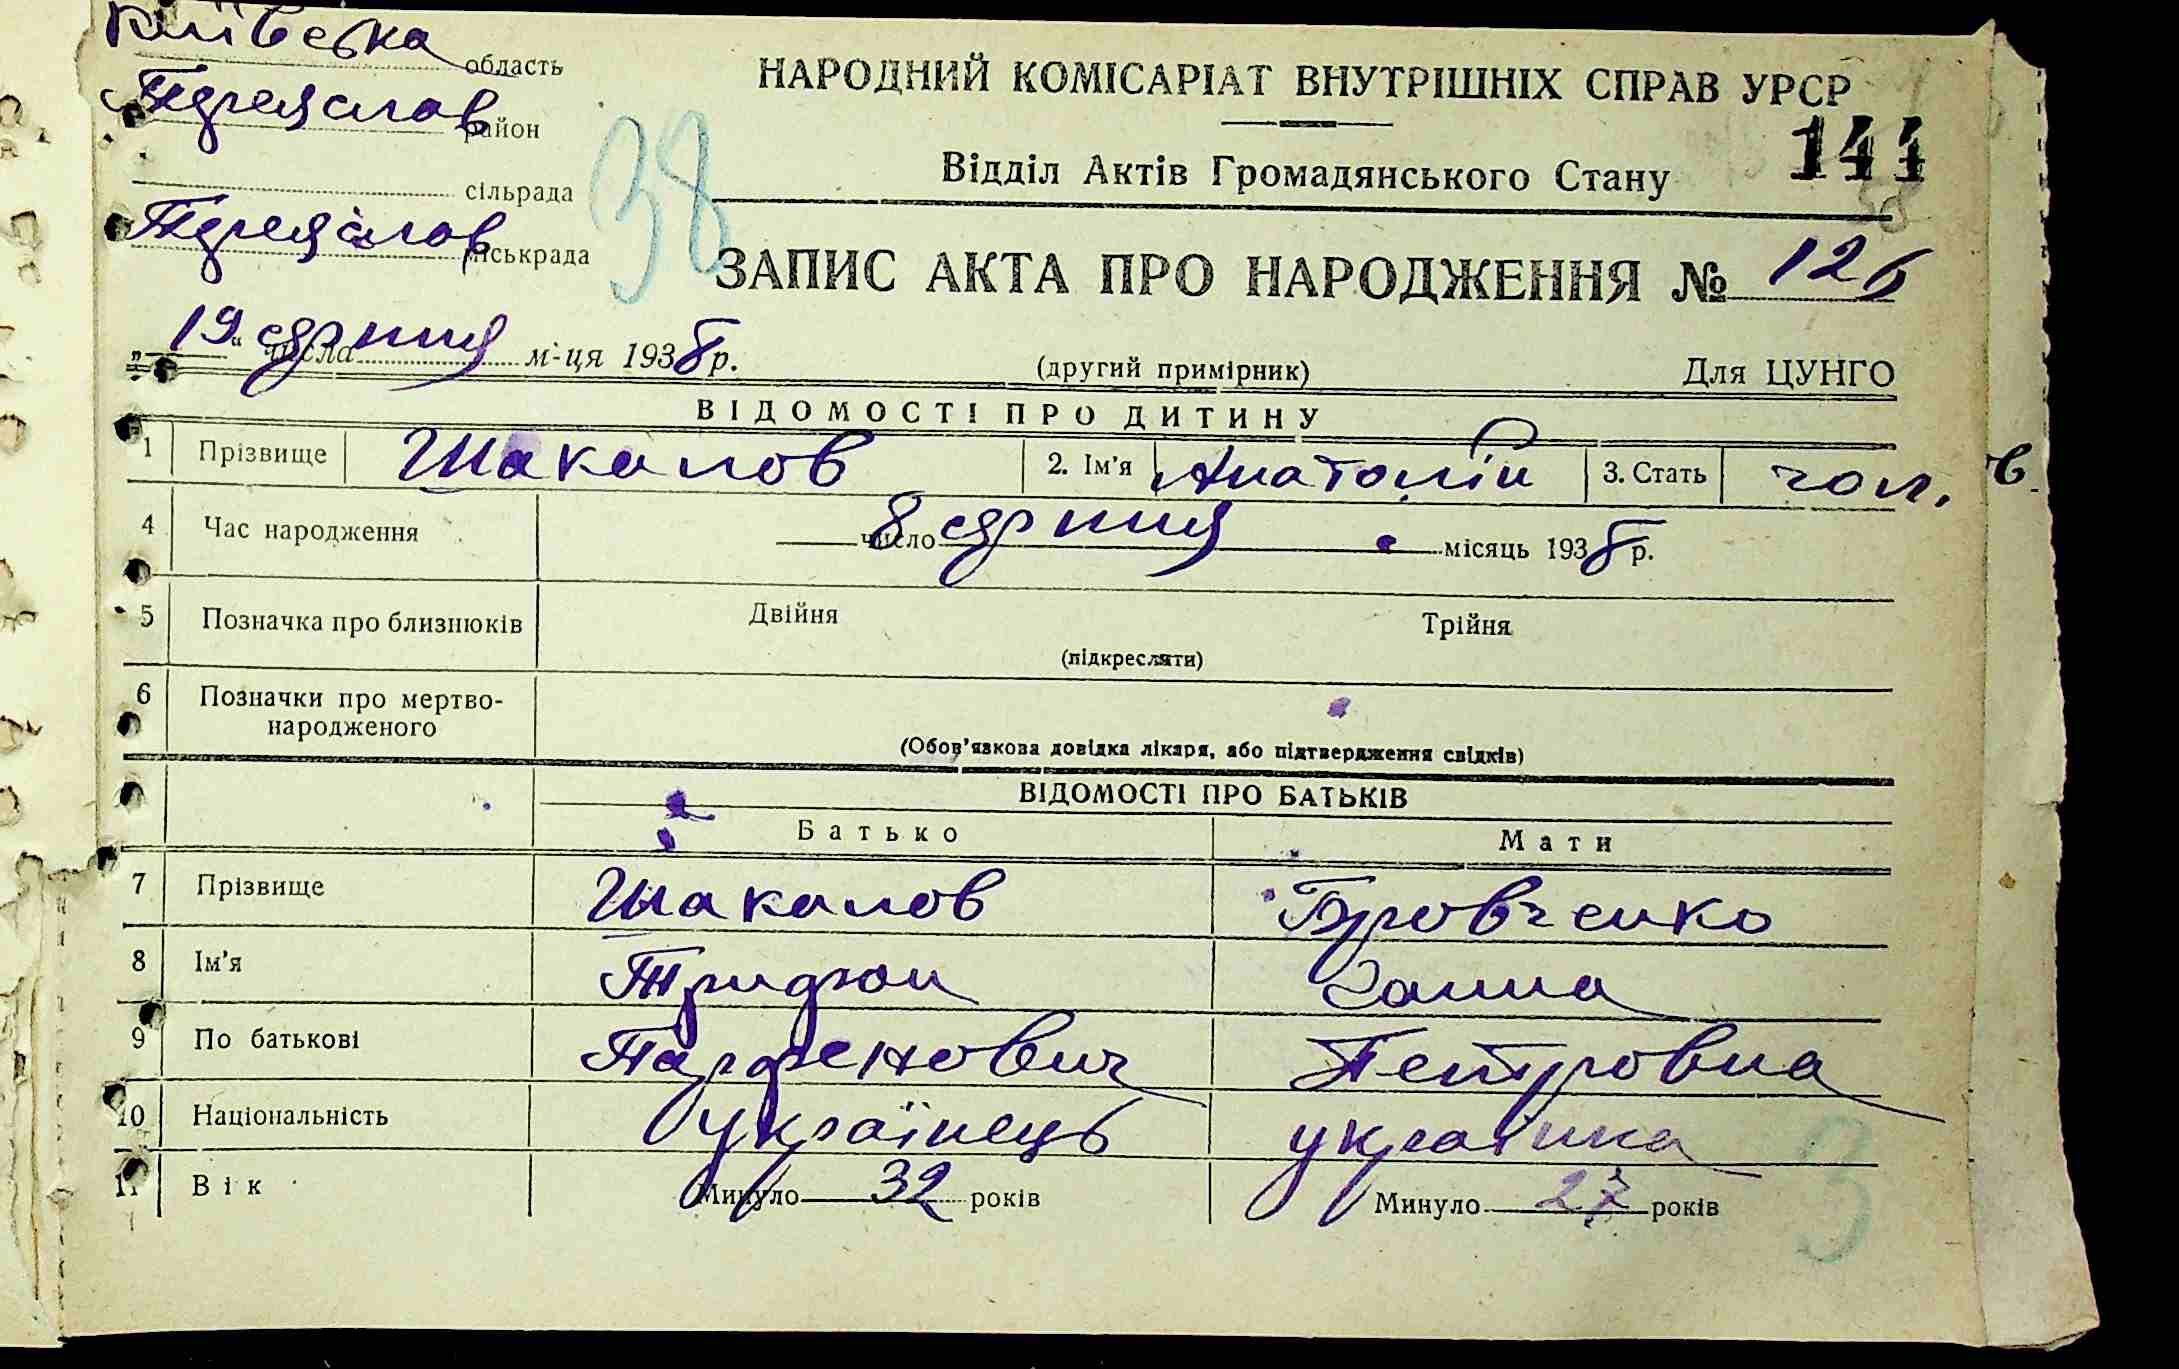 Київська область
Переяслав район
сільрада
Переяслав міськрада
38
НАРОДНИЙ КОМІСАРІАТ ВНУТРІШНІХ СПРАВ УРСР
144
Відділ Актів Громадянського Стану
38
ЗАПИС АКТА ПРО НАРОДЖЕННЯ № 126
„19“ числа серпня м-ця 1938 р.
(другий примірник)
Для ЦУНГО
ВІДОМОСТІ ПРО ДИТИНУ
1 Прізвище Шакалов 2. Ім’я Анатолій 3. Стать чол.
4 Час народження 8 число серпня місяць 1938 р.
5 Позначка про близнюків Двійня Трійня
(підкреслити)
6 Позначки про мертво-
народженого
(Обов’язкова довідка лікаря, або підтвердження свідків)
ВІДОМОСТІ ПРО БАТЬКІВ
Батько Мати
7 Прізвище Шакалов Бровченко
8 Ім’я Трифон Ганна
9 По батькові Парфенович Петровна
10 Національність українець українка
11 Вік Минуло 32 років Минуло 27 років
3